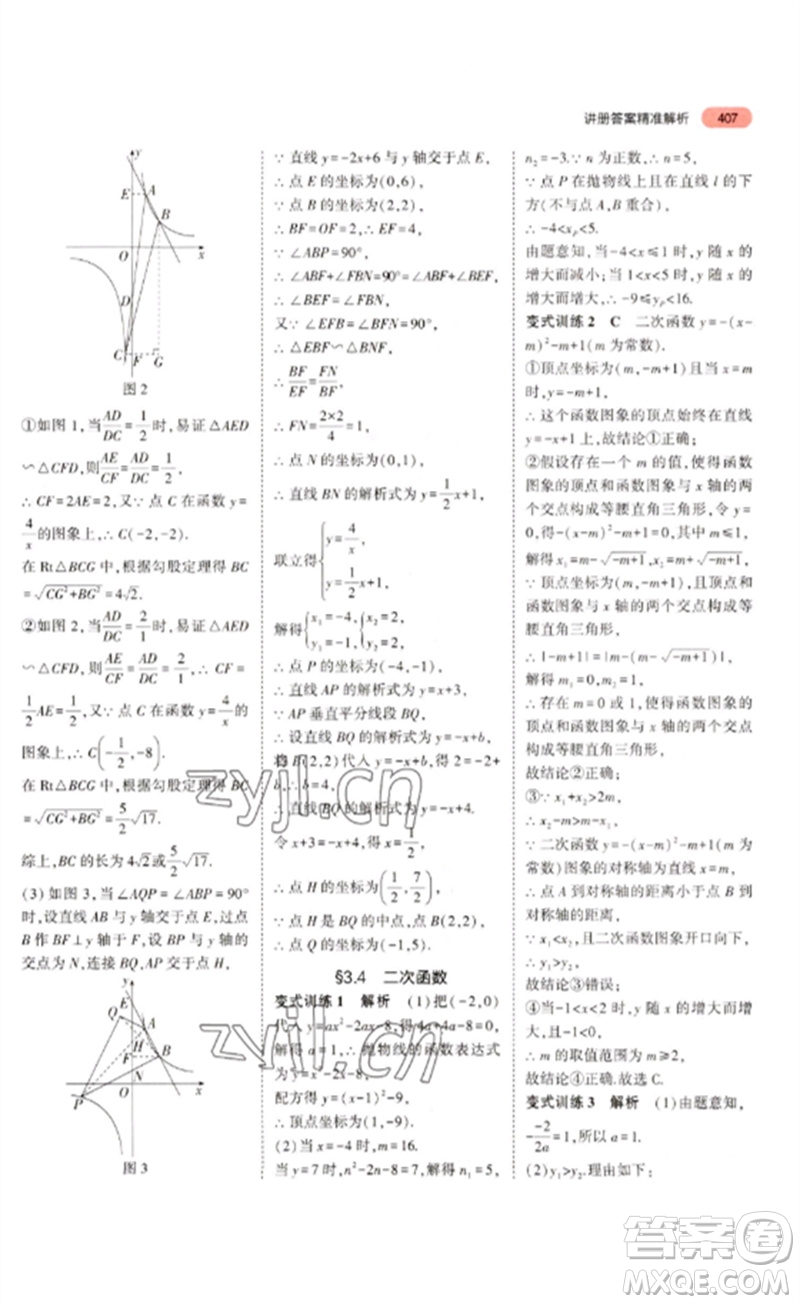 讲册答案精准解析 407
y
E
A
B
O
x
D
C
F
G
图2
①如图1,当AD/DC=1/2时,易证△AED
∽△CFD,则AE/CF=AD/DC=1/2,
∴CF=2AE=2,又∵点C在函数y=
4/x的图象上,∴C(-2,-2).
在Rt△BCG中,根据勾股定理得BC
=√(CG²+BG²)=4√2.
②如图2,当AD/DC=2/1时,易证△AED
∽△CFD,则AE/CF=AD/DC=2/1,∴CF=
1/2AE=1/2,又∵点C在函数y=4/x的
图象上,∴C(-1/2,-8).
在Rt△BCG中,根据勾股定理得BC
=√(CG²+BG²)=5/2√17.
综上,BC的长为4√2或5/2√17.
(3)如图3,当∠AQP=∠ABP=90°
时,设直线AB与y轴交于点E,过点
B作BF⊥y轴于F,设BP与y轴的
交点为N,连接BQ,
y
E
Q
A
H
F
B
N
P
O
x
图3
∵直线y=-2x+6与y轴交于点E,
∴点E的坐标为(0,6),
∵点B的坐标为(2,2),
∴BF=OF=2,∴EF=4,
∵∠ABP=90°,
∴∠ABF+∠FBN=90°=∠ABF+∠BEF,
∴∠BEF=∠FBN,
又∵∠EFB=∠BFN=90°,
∴△EBF∽△BNF,
∴BF/EF=FN/BF,
∴FN=2×2/4=1,
∴点N的坐标为(0,1),
∴直线BN的解析式为y=1/2x+1,
联立得{y=4/x,
y=1/2x+1,
解得{x₁=-4,y₁=-1,{x₂=2,y₂=2,
∴点P的坐标为(-4,-1),
∴直线AP的解析式为y=x+3,
∵AP垂直平分线段BQ,
∴设直线BQ的解析式为y=-x+b,
将B(2,2)代入y=-x+b,得2=-2+
b,∴b=4,
∴直线BQ的解析式为y=-x+4.
令x+3=-x+4,得x=1/2,
∴点H的坐标为(1/2,7/2),
∵点H是BQ的中点,点B(2,2),
∴点Q的坐标为(-1,5).
§3.4 二次函数
变式训练1 解析 (1)把(-2,0)
代入y=ax²-2ax-8,得4a+4a-8=0,
解得a=1,∴抛物线的函数表达式
为y=x²-2x-8,
配方得y=(x-1)²-9,
∴顶点坐标为(1,-9).
(2)当x=-4时,m=16.
当y=7时,n²-2n-8=7,解得n₁=5,
n₂=-3.∵n为正数,∴n=5,
∵点P在抛物线上且在直线l的下
方(不与点A,B重合),
∴-4<xₚ<5.
由题意知,当-4<x≤1时,y随x的
增大而减小;当1<x<5时,y随x的
增大而增大,∴-9≤yₚ<16.
变式训练2 C 二次函数y=-(x-
m)²-m+1(m为常数).
①顶点坐标为(m,-m+1)且当x=m
时,y=-m+1,
∴这个函数图象的顶点始终在直线
y=-x+1上,故结论①正确;
②假设存在一个m的值,使得函数
图象的顶点和函数图象与x轴的两
个交点构成等腰直角三角形,令y=
0,得-(x-m)²-m+1=0,其中m≤1,
解得x₁=m-√(-m+1),x₂=m+√(-m+1),
∵顶点坐标为(m,-m+1),且顶点和
函数图象与x轴的两个交点构成等
腰直角三角形,
∴|-m+1|=|m-(m-√(-m+1))|,
解得m₁=0,m₂=1,
∴存在m=0或1,使得函数图象的
顶点和函数图象与x轴的两个交点
构成等腰直角三角形,
故结论②正确;
③∵x₁+x₂>2m,
∴x₂-m>m-x₁,
∵二次函数y=-(x-m)²-m+1(m为
常数)图象的对称轴为直线x=m,
∴点A到对称轴的距离小于点B到
对称轴的距离,
∵x₁<x₂,且二次函数图象开口向下,
∴y₁>y₂,
故结论③错误;
④当-1<x<2时,y随x的增大而增大,
∴m的取值范围为m≥2,
故结论④正确.故选C.
变式训练3 解析 (1)由题意知,
-(-2/2a)=1,所以a=1.
(2)y₁>y₂.理由如下:
zyjl.cn
zyjl.cn
答案圈
MXQE.COM